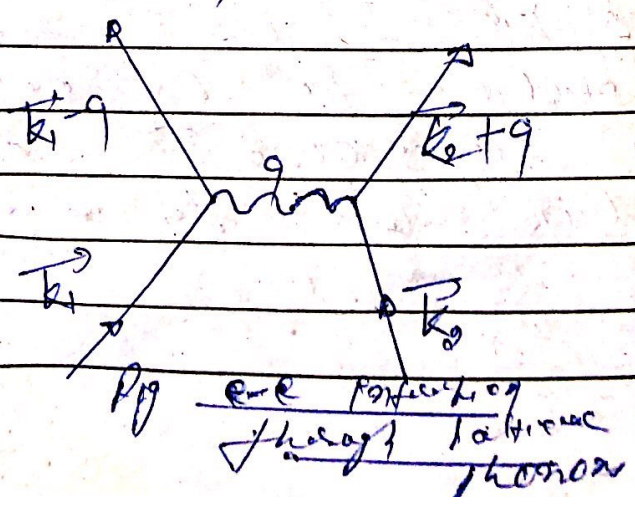 k₁-q
k₂+q
q
k₁
k₂
Fig e-e interaction
through lattice
phonon